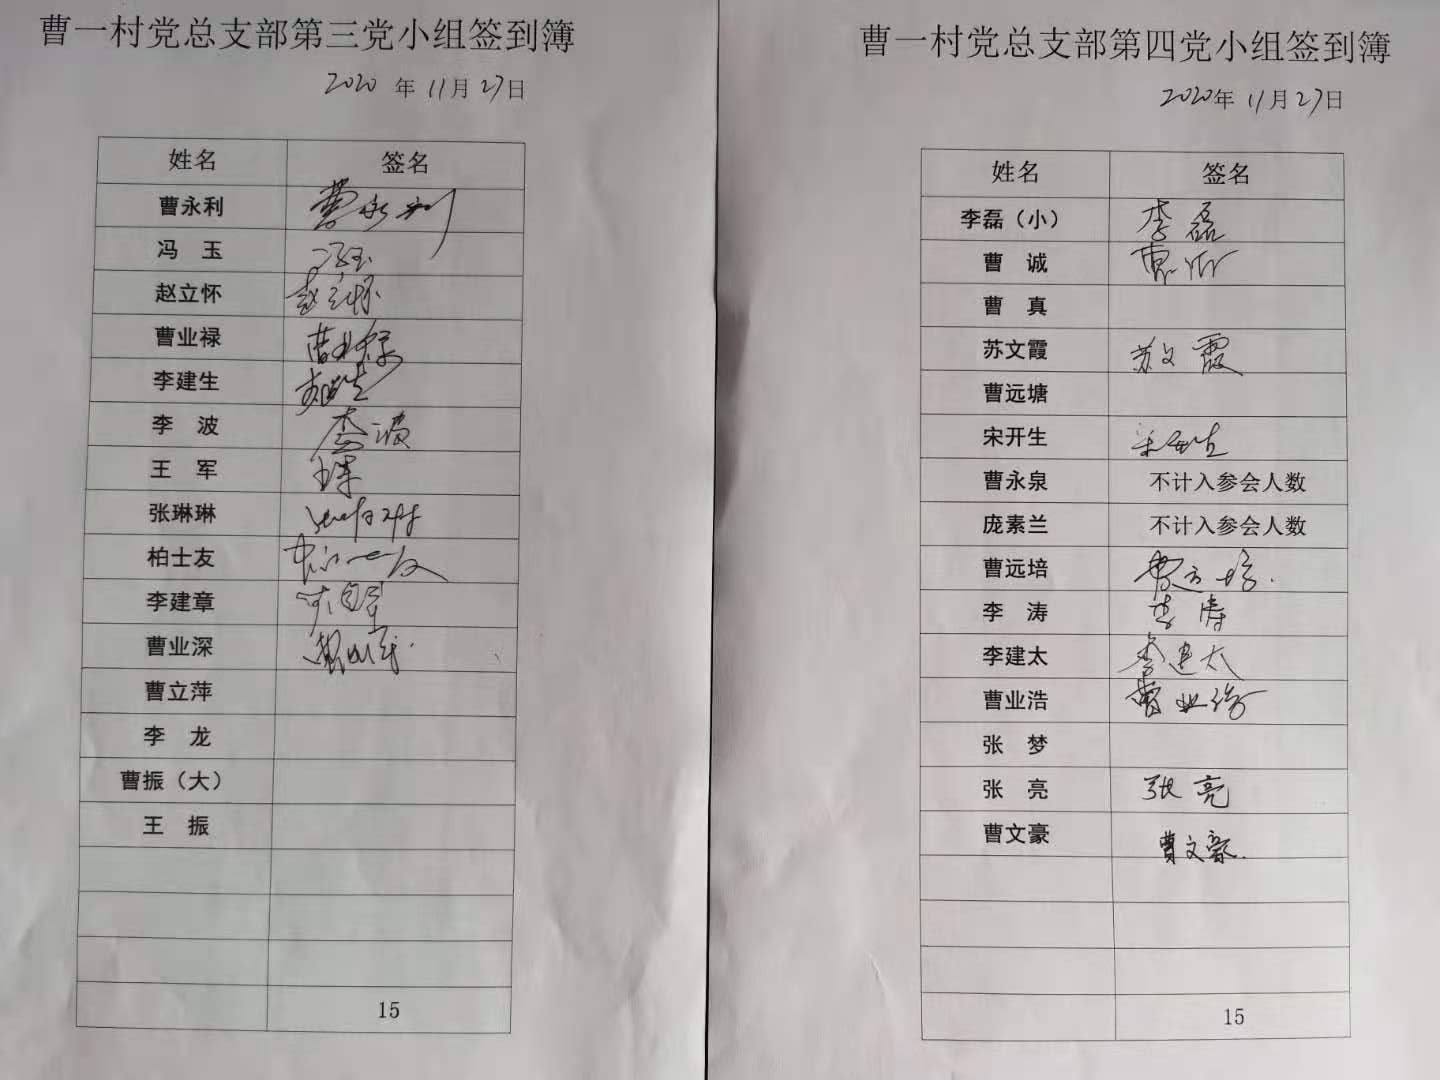 曹一村党总支部第三党小组签到簿
2020 年 11月 27日
姓名 签名
曹永利 曹永利
冯 玉 冯玉
赵立怀 赵立怀
曹业禄 曹业禄
李建生 李建生
李 波 李波
王 军 王军
张琳琳
柏士友 柏士友
李建章
曹业深
曹立萍
李 龙
曹振（大）
王 振
15
曹一村党总支部第四党小组签到簿
2020年 11月27日
姓名 签名
李磊（小） 李磊
曹 诚 曹诚
曹 真
苏文霞 苏文霞
曹远塘
宋开生 宋开生
曹永泉 不计入参会人数
庞素兰 不计入参会人数
曹远培 曹远培.
李 涛 李涛
李建太 李建太
曹业浩 曹业浩
张 梦
张 亮 张亮
曹文豪 曹文豪.
15